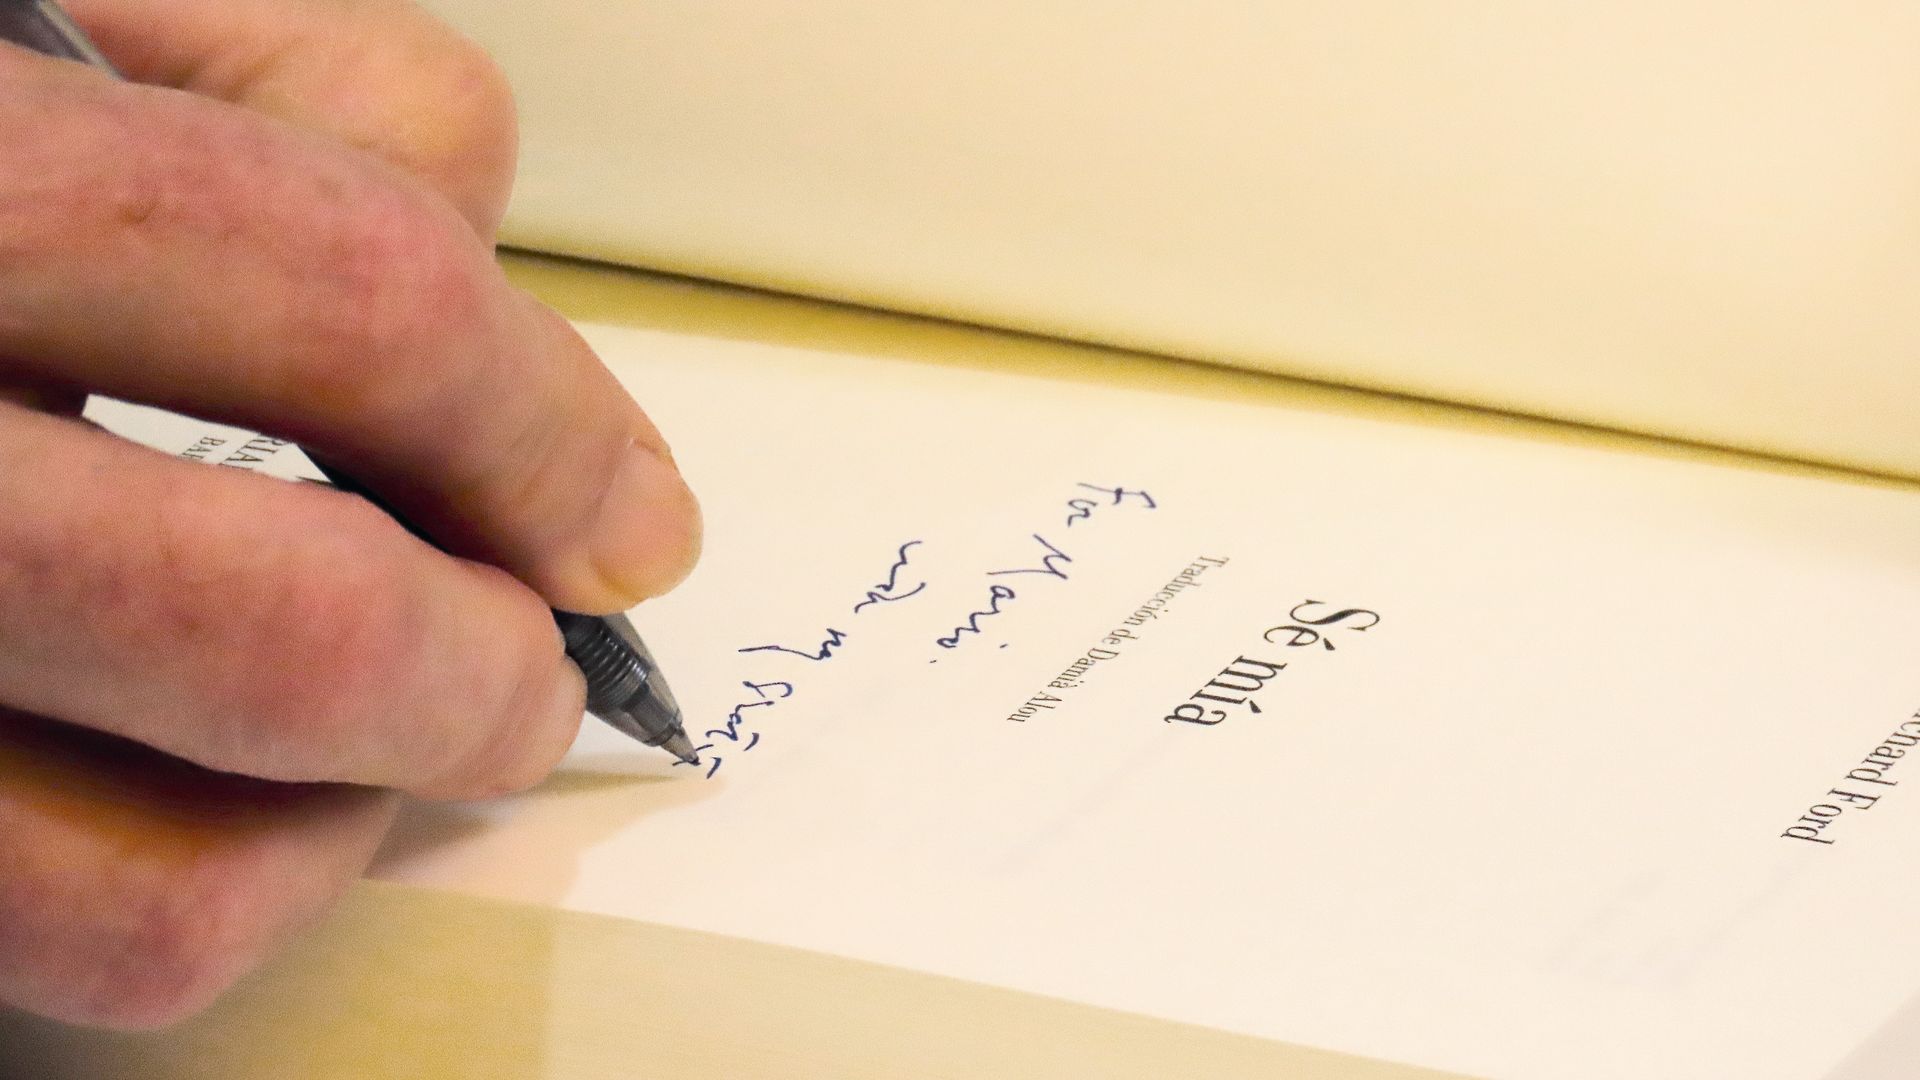 chard Ford
Sé mía
Traducción de Damià Alou
For Mario.
with my
RIAL
BAR